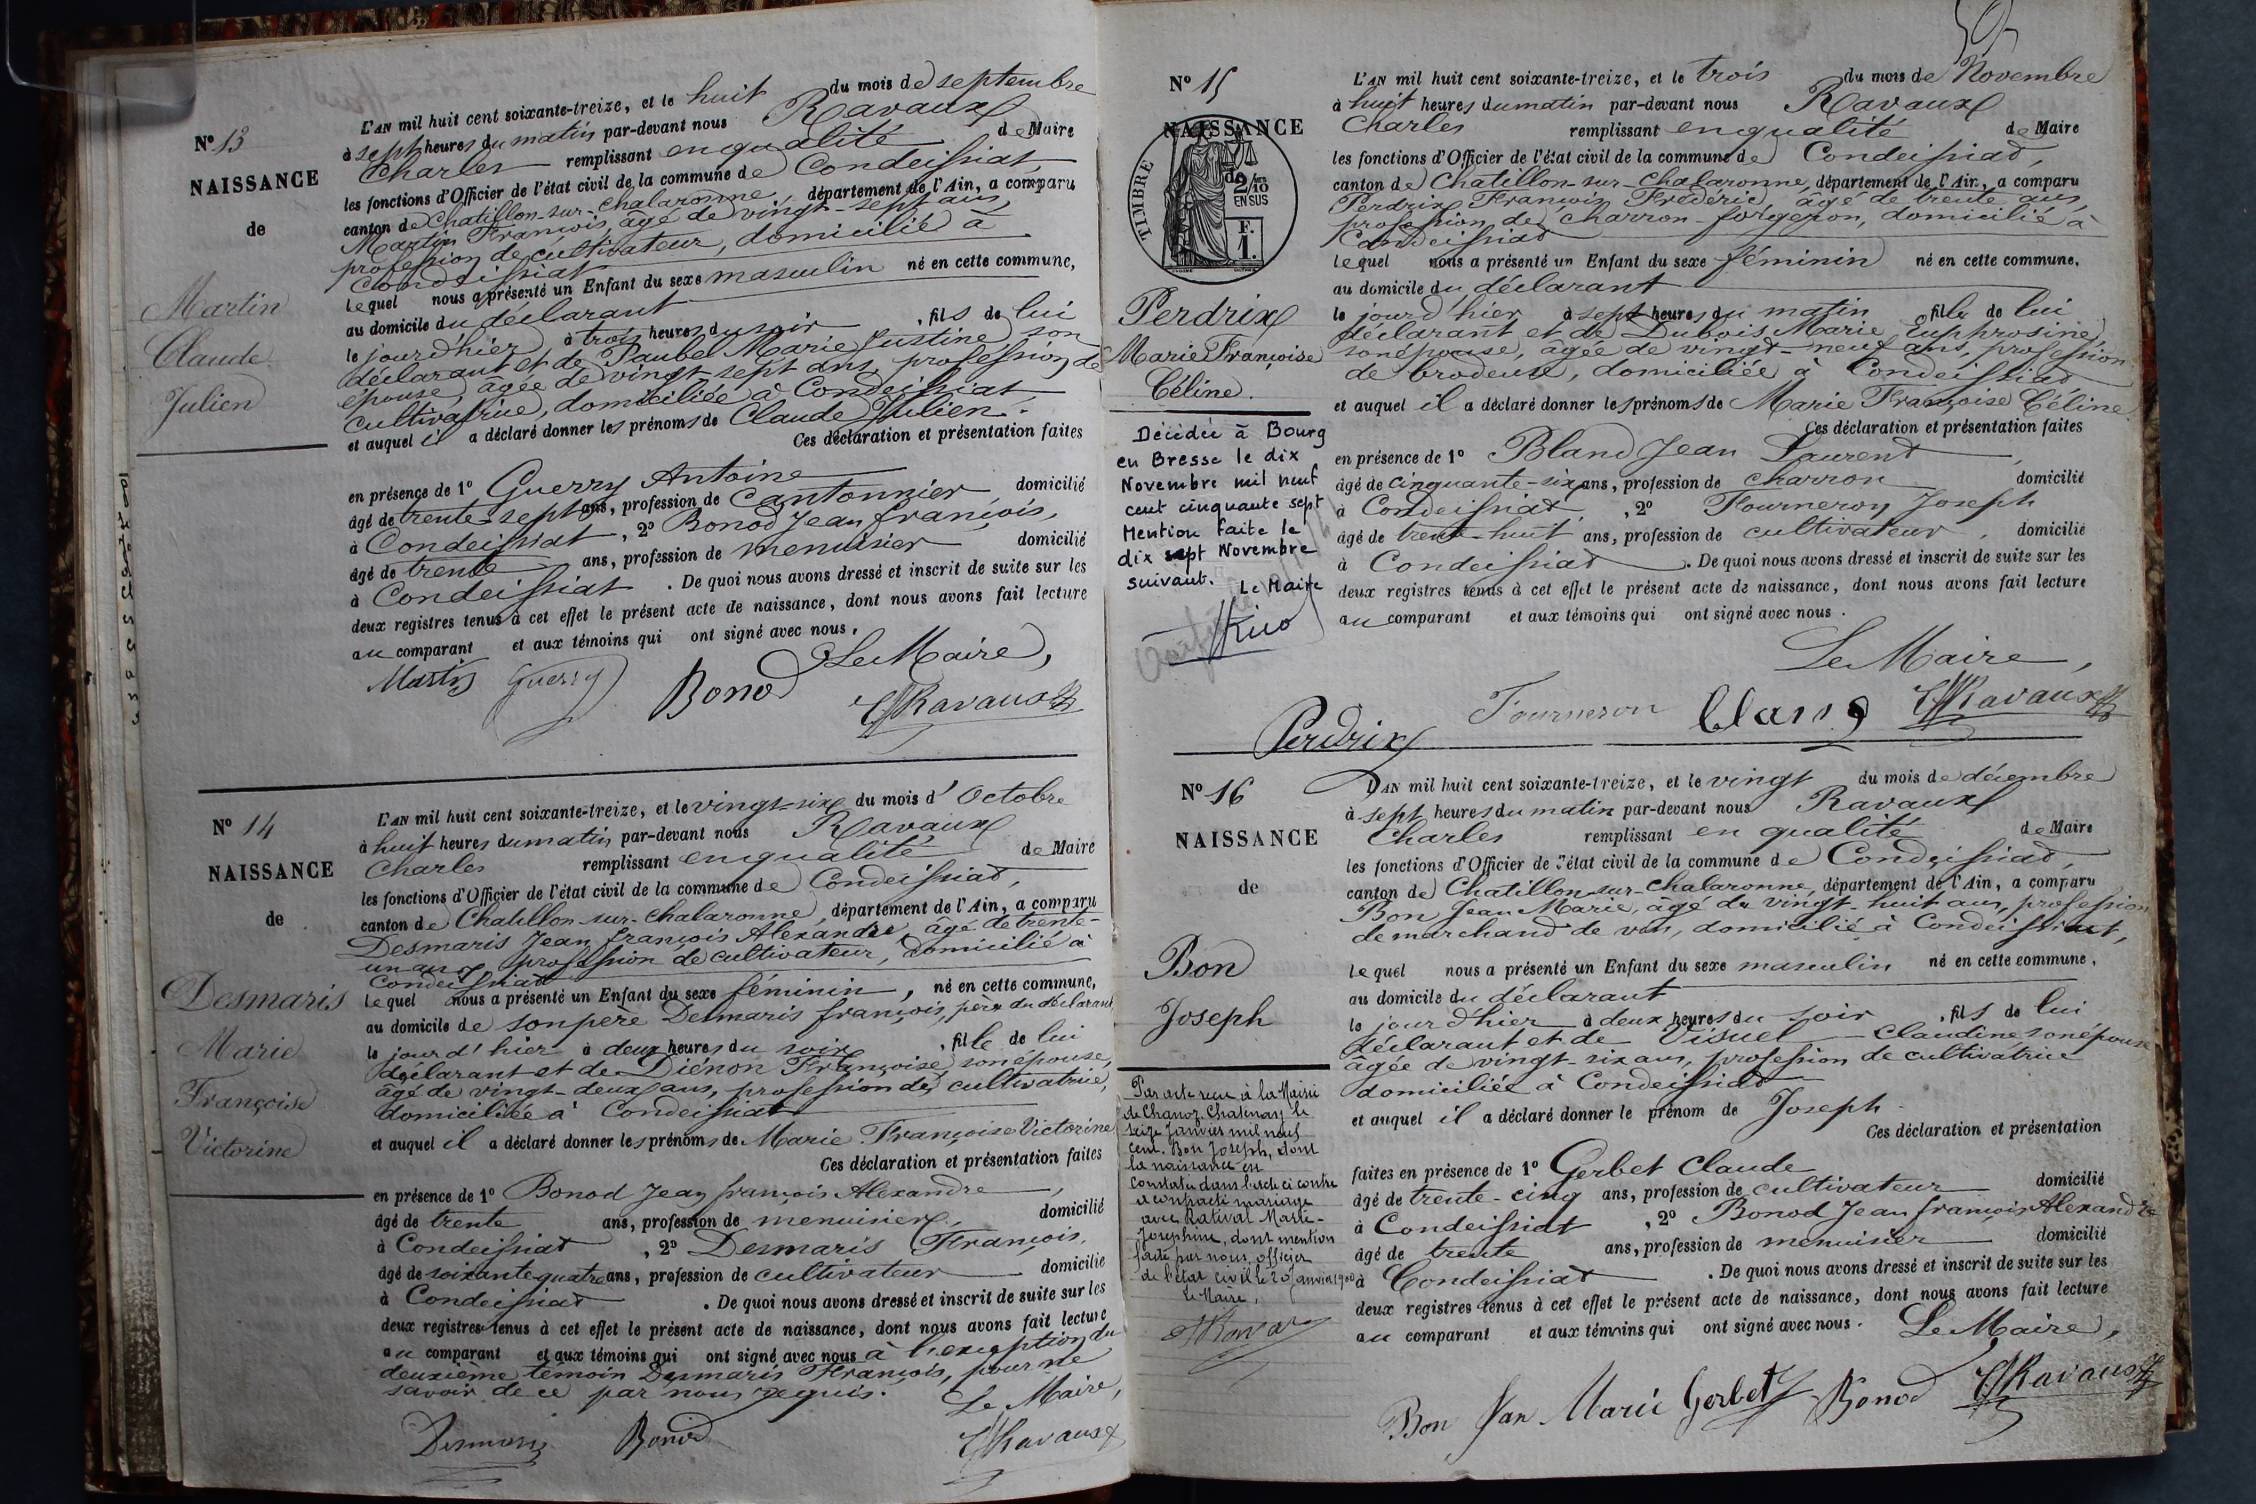 N° 13
NAISSANCE
de
Martin
Claude
Julien
L'AN mil huit cent soixante-treize, et le huit du mois de septembre
à sept heures du matin par-devant nous Ravaux
Charles remplissant en qualité de Maire
les fonctions d'Officier de l'état civil de la commune de Condeissiat,
canton de Chatillon-sur-Chalaronne, département de l'Ain, a comparu
Martin François, âgé de vingt-sept ans,
profession de cultivateur, domicilié à
Condeissiat
lequel nous a présenté un Enfant du sexe masculin né en cette commune,
au domicile du déclarant
le jour d'hier à trois heures du soir, fils de lui
déclarant et de Paubel Marie Justine son
épouse, âgée de vingt-sept ans, profession de
cultivatrice, domiciliée à Condeissiat
et auquel il a déclaré donner les prénoms de Claude Julien.
Ces déclaration et présentation faites
en présence de 1° Guerry Antoine
âgé de trente-sept ans, profession de Cantonnier, domicilié
à Condeissiat, 2° Bonod Jean françois,
âgé de trente ans, profession de menuisier domicilié
à Condeissiat. De quoi nous avons dressé et inscrit de suite sur les
deux registres tenus à cet effet le présent acte de naissance, dont nous avons fait lecture
au comparant et aux témoins qui ont signé avec nous.
Le Maire,
Martin Guerry Bonod Ravaux
N° 14
NAISSANCE
de
Desmaris
Marie
Françoise
Victorine
L'AN mil huit cent soixante-treize, et le vingt-six du mois d'Octobre
à huit heures du matin par-devant nous Ravaux
Charles remplissant en qualité de Maire
les fonctions d'Officier de l'état civil de la commune de Condeissiat,
canton de Chatillon-sur-Chalaronne, département de l'Ain, a comparu
Desmaris Jean françois Alexandre, âgé de trente-
un ans, profession de cultivateur, domicilié à
Condeissiat
lequel nous a présenté un Enfant du sexe féminin, né en cette commune,
au domicile de son père Desmaris françois, père du déclarant
le jour d'hier à deux heures du soir, fille de lui
déclarant et de Diénon Françoise, son épouse,
âgé de vingt-deux ans, profession de cultivatrice,
domiciliée à Condeissiat
et auquel il a déclaré donner les prénoms de Marie Françoise Victorine
Ces déclaration et présentation faites
en présence de 1° Bonod Jean françois Alexandre,
âgé de trente ans, profession de menuisier, domicilié
à Condeissiat, 2° Desmaris François,
âgé de soixante quatre ans, profession de cultivateur domicilié
à Condeissiat. De quoi nous avons dressé et inscrit de suite sur les
deux registres tenus à cet effet le présent acte de naissance, dont nous avons fait lecture
au comparant et aux témoins qui ont signé avec nous à l'exception du
deuxième témoin Desmaris François, pour ne
savoir de ce par nous requis.
Le Maire,
Desmaris Bonod Ravaux
N° 15
NAISSANCE
de
TIMBRE
2/10
EN SUS
F.
1.
Perdrix
Marie Françoise
Céline.
Décédée à Bourg
en Bresse le dix
Novembre mil neuf
cent cinquante sept
Mention faite le
dix sept Novembre
suivant.
Le Maire
L'AN mil huit cent soixante-treize, et le trois du mois de Novembre
à huit heures du matin par-devant nous Ravaux
Charles remplissant en qualité de Maire
les fonctions d'Officier de l'état civil de la commune de Condeissiat,
canton de Chatillon-sur-Chalaronne, département de l'Ain, a comparu
Perdrix François Frédéric, âgé de trente ans,
profession de charron-forgeron, domicilié à
Condeissiat
lequel nous a présenté un Enfant du sexe féminin né en cette commune,
au domicile du déclarant
le jour d'hier à sept heures du matin fille de lui
déclarant et de Dubois Marie Euphrosine,
son épouse, âgée de vingt-neuf ans, profession
de brodeuse, domiciliée à Condeissiat
et auquel il a déclaré donner les prénoms de Marie Françoise Céline
Ces déclaration et présentation faites
en présence de 1° Bland Jean Laurent,
âgé de cinquante-six ans, profession de charron domicilié
à Condeissiat, 2° Fourneron Joseph
âgé de trente-huit ans, profession de cultivateur, domicilié
à Condeissiat. De quoi nous avons dressé et inscrit de suite sur les
deux registres tenus à cet effet le présent acte de naissance, dont nous avons fait lecture
au comparant et aux témoins qui ont signé avec nous.
Le Maire,
Perdrix Fourneron Ravaux
N° 16
NAISSANCE
de
Bon
Joseph
Par acte reçu à la Mairie
de Chanoz Chatenay le
seize Janvier mil neuf
cent. Bon Joseph, dont
la naissance est
constatée dans l'acte ci contre
a contracté mariage
avec Rativat Marie-
Josephine, dont mention
faite par nous, officier
de l'état civil le 20 Janvier 1900
Le Maire,
L'AN mil huit cent soixante-treize, et le vingt du mois de décembre
à sept heures du matin par-devant nous Ravaux
Charles remplissant en qualité de Maire
les fonctions d'Officier de l'état civil de la commune de Condeissiat,
canton de Chatillon-sur-Chalaronne, département de l'Ain, a comparu
Bon Jean Marie, âgé de vingt-huit ans, profession
de marchand de vin, domicilié à Condeissiat,
lequel nous a présenté un Enfant du sexe masculin né en cette commune,
au domicile du déclarant
le jour d'hier à deux heures du soir, fils de lui
déclarant et de Visuel Claudine son épouse
âgée de vingt-six ans, profession de cultivatrice
domiciliée à Condeissiat
et auquel il a déclaré donner le prénom de Joseph
Ces déclaration et présentation
faites en présence de 1° Gerbet Claude
âgé de trente-cinq ans, profession de cultivateur domicilié
à Condeissiat, 2° Bonod Jean françois Alexandre
âgé de trente ans, profession de menuisier domicilié
à Condeissiat. De quoi nous avons dressé et inscrit de suite sur les
deux registres tenus à cet effet le présent acte de naissance, dont nous avons fait lecture
au comparant et aux témoins qui ont signé avec nous.
Le Maire,
Bon Jan Marie Gerbet Bonod Ravaux